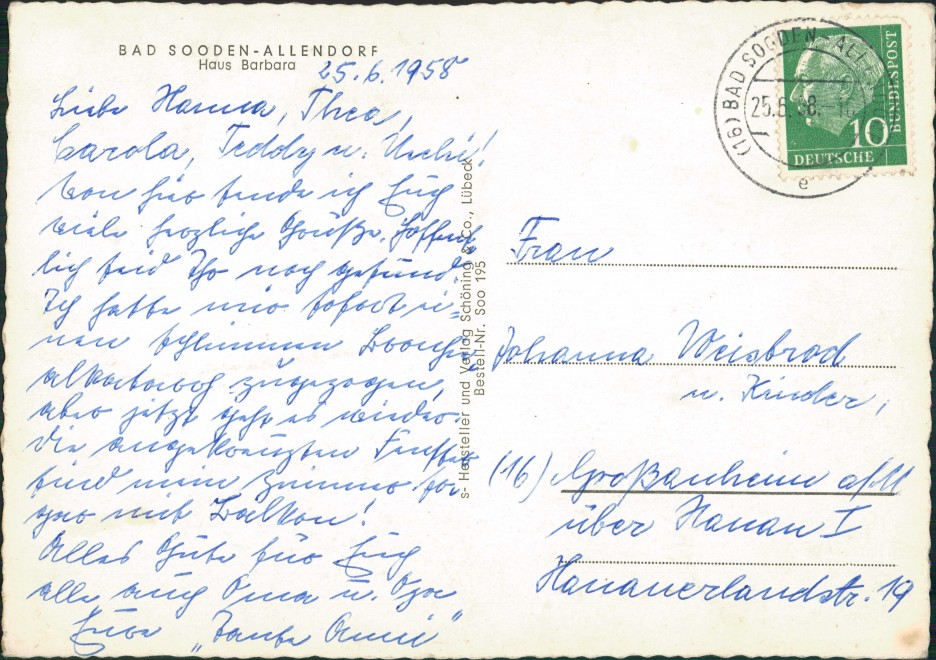 BAD SOODEN-ALLENDORF
Haus Barbara
25.6.1958
Liebe Hanna, Thea,
Carola, Teddy u. Uschi!
Von hier sende ich Euch
viele herzliche Grüße. Hoffent-
lich seid Ihr noch gesund.
Ich hatte mir sofort ei-
nen schlimmen Bronchi-
alkatarrh zugezogen,
aber jetzt geht es wieder.
Die angekreuzten Fenster
sind mein Zimmer so-
gar mit Balkon!
Alles Gute für Euch
alle auch Oma u. Opa
Eure "Tante Anni"
s- Hersteller und Verlag Schöning & Co., Lübeck
Bestell-Nr. Soo 195
(16) BAD SOODEN-ALL
25.6.58.-16
e
BUNDESPOST
10
DEUTSCHE
Frau
Johanna Weisbrod
u. Kinder,
(16) Großauheim a/M
über Hanau I
Hanauerlandstr. 19